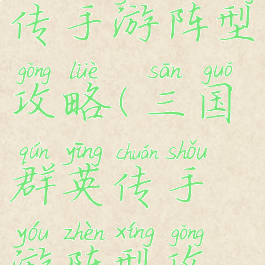 传手游阵型
gōng lüè sān guó
攻略(三国
qún yīng chuán shǒu
群英传手
yóu zhèn xíng gōng
游阵型攻